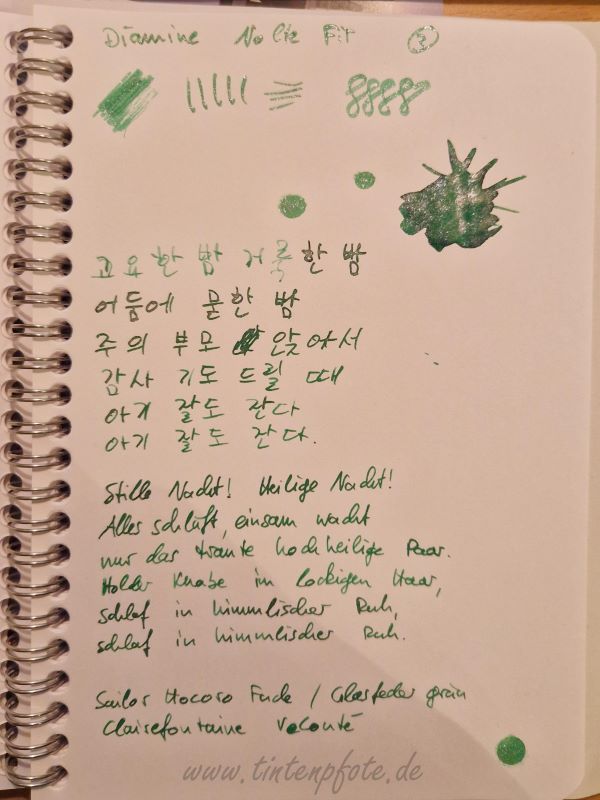 Diamine Noble Fir 3
고요한 밤 거룩 한 밤
어둠에 묻한 밤
주의 부모 앉아서
감사 기도 드릴 때
아기 잘도 잔다
아기 잘도 잔다.
Stille Nacht! Heilige Nacht!
Alles schläft, einsam wacht
nur das traute hochheilige Paar.
Holder Knabe im lockigen Haar,
schlaf in himmlischer Ruh,
schlaf in himmlischer Ruh.
Sailor Hocoro Fude / Glasfeder grün
Clairefontaine Velouté
www.tintenpfote.de